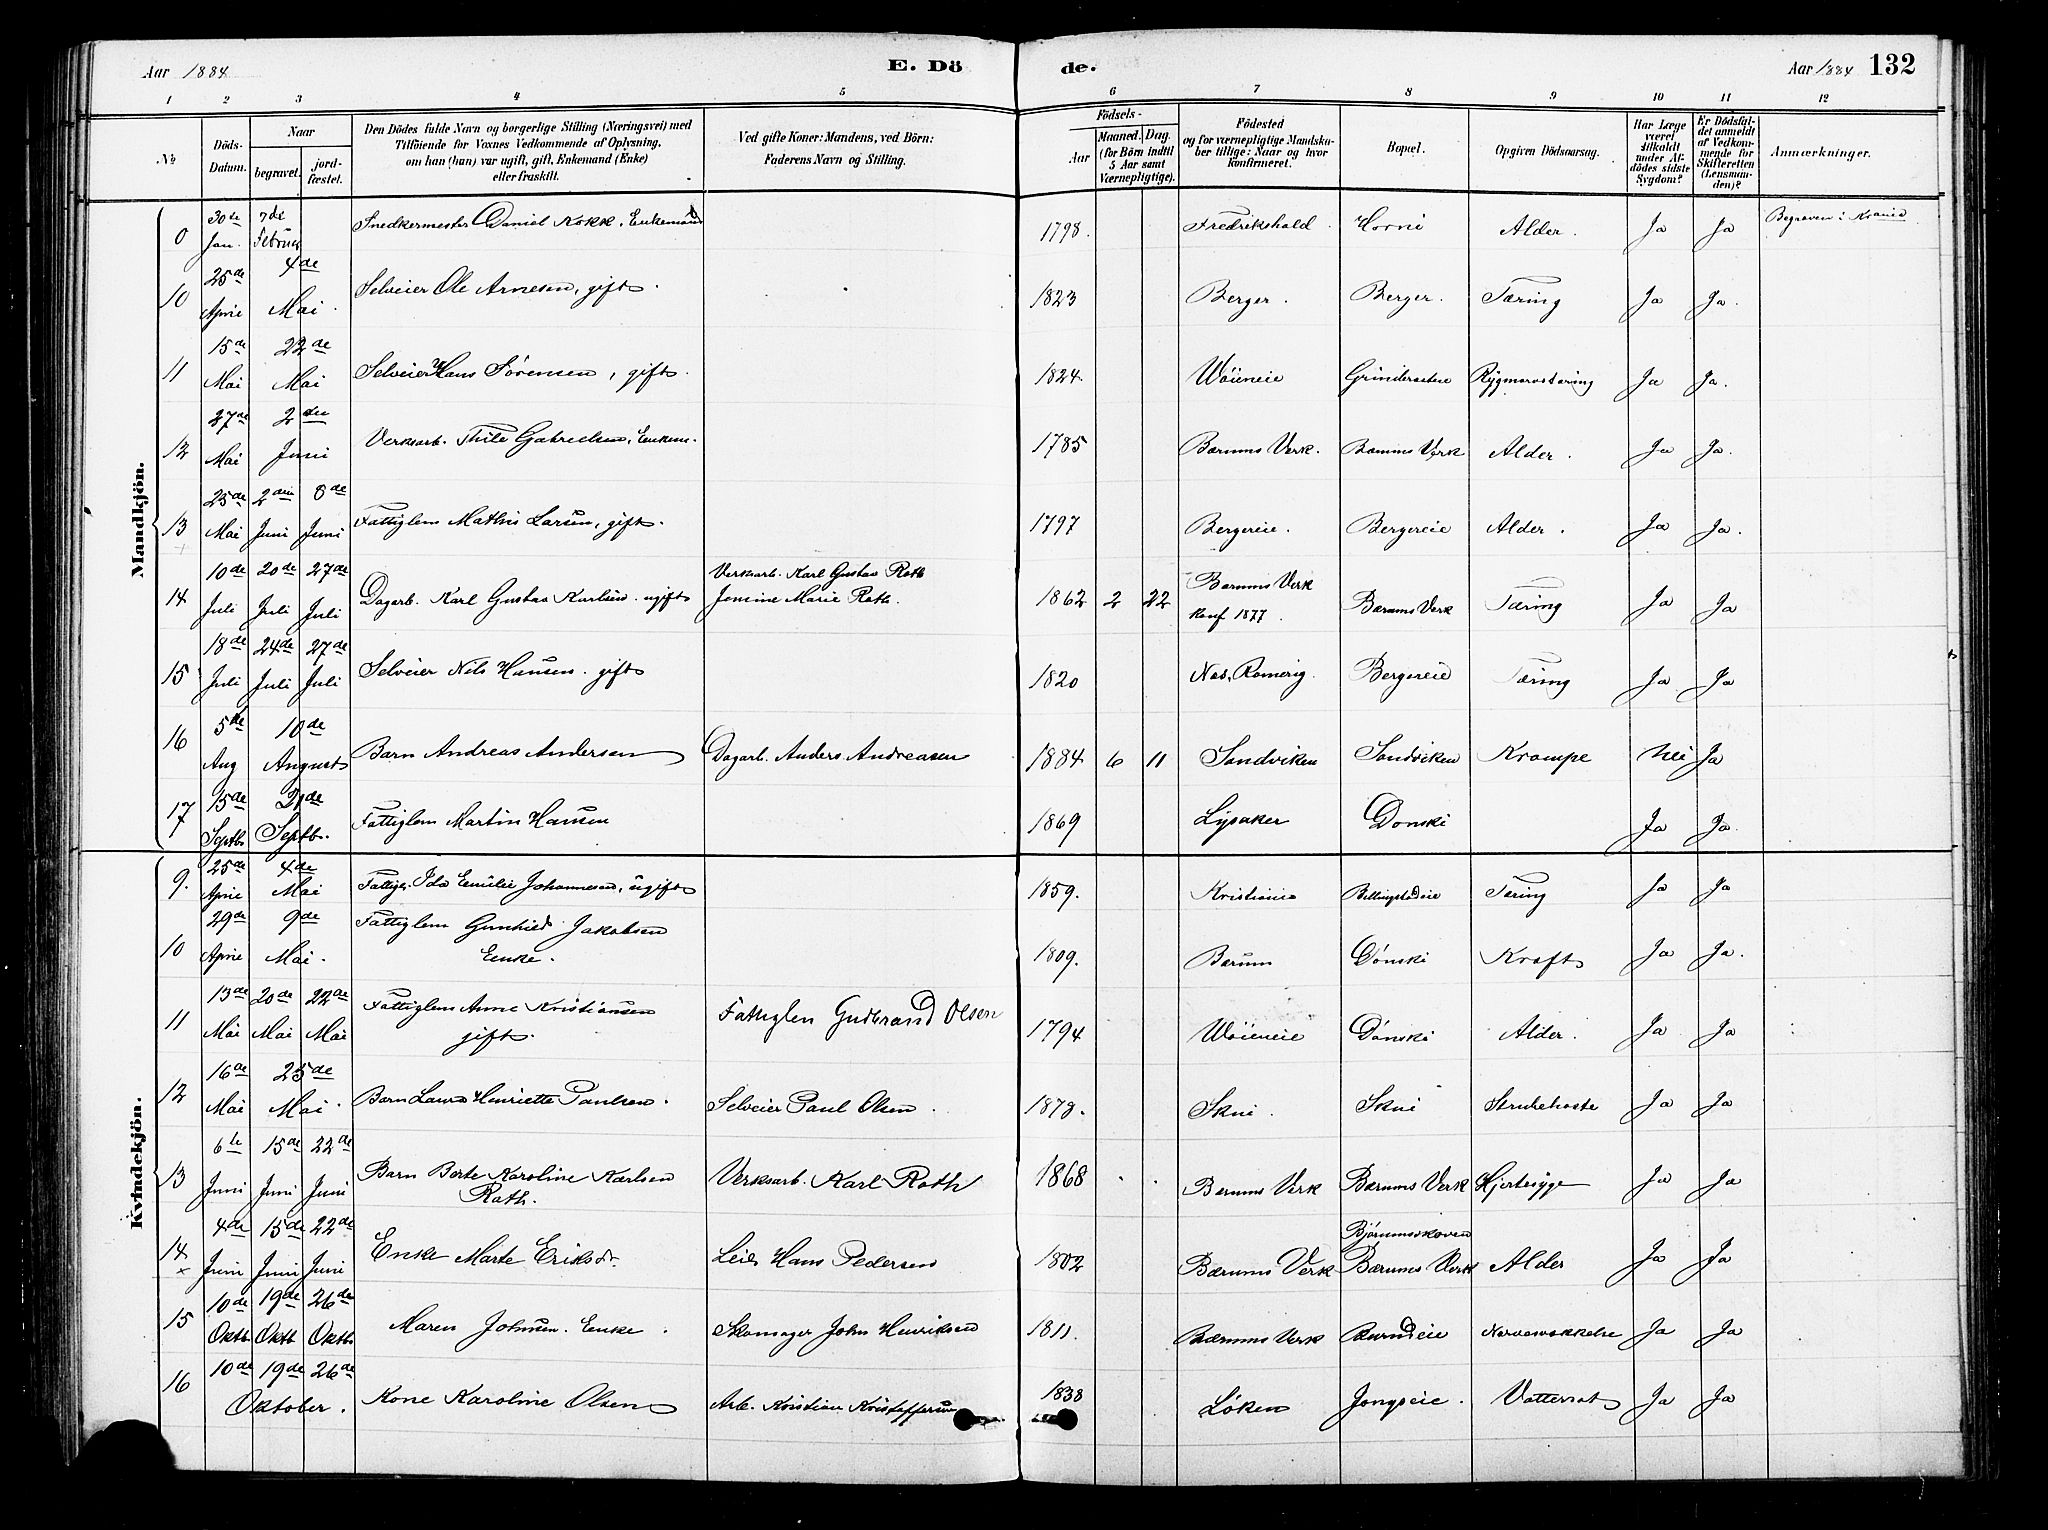 Aar 1884
E. Dö
de.
Aar 1884 132
1 2 3 4 5 6 7 8 9 10 11 12
No
Döds-Datum.
Naar
begravet.
jord-fæstet.
Den Dödes fulde Navn og borgerlige Stilling (Næringsvei) med
Tilföiende for Voxnes Vedkommende af Oplysning,
om han (hun) var ugift, gift, Enkemand (Enke)
eller fraskilt.
Ved gifte Koner: Mandens, ved Börn:
Faderens Navn og Stilling.
Födsels-
Aar
Maaned. Dag.
(for Börn indtil
5 Aar samt
Værnepligtige).
Födested
og for værnepligtige Mandska-
ber tillige: Naar og hvor
konfirmeret.
Bopæl.
Opgiven Dödsaarsag.
Har Læge
været
tilkaldt
under Af-
dödes sidste
Sygdom?
Er Dödsfal-
det anmeldt
af Vedkom-
mende for
Skifteretten
(Lensman-
den)?
Anmærkninger.
Mandkjön.
0 30te Jan. 7de Februar Snedkermester Daniel Kokk, Enkemand 1798. Fredrikshald Horni Alder. Ja Ja Begraven i
10 25de April 4de Mai. Selveier Ole Arnesen, gift. 1823 Berger. Berger. Tæring Ja Ja.
11 15de Mai 22de Mai Selveier Hans Sørensen, gift. 1824. Wøieneie Rygmarvstæring Ja Ja.
12 27de Mai 2den Juni Verksarb. Thile Gabrielsen, Enkem. 1785 Bærums Verk. Bærums Verk Alder. Ja Ja.
13 25de Mai 2den Juni 8de Juni Fattiglem Mathis Larsen, gift. 1797 Bergereie. Bergereie Alder. Ja Ja.
14 10de Juli 20de Juli 27de Juli Dagarb. Karl Gustav Karlsen. ugift Verksarb. Karl Gustav Roth
Jensine Marie Roth. 1862 2 22 Bærums Verk
konf 1877. Bærums Verk Tæring Ja Ja
15 18de Juli 24de Juli 27de Juli Selveier Nils Hansen. gift 1820 Næs, Romerig. Bergereie Tæring Ja Ja
16 5te Aug 10de August Barn Andreas Andersen Dagarb. Anders Andreasen 1884 6 11 Sandviken Sandviken Krampe Nei Ja
17 15de Septb. 21de Septb. Fattiglem Martin Hansen 1869 Lysaker Dønski Ja Ja.
Kvindekjön.
9. 25de April 4de Mai Fattigl. Ida Emilie Johannesen, ugift 1859. Kristiania Billingstadeie Tæring Ja Ja
10 29de April 9de Mai. Fattiglem Gunhild Jakobsen
Enke. 1809. Bærum Dønski Kræft Ja Ja.
11 13de Mai 20de Mai 22de Mai Fattiglem Anne Kristiansen
gift. Fattiglem Gudbrand Olsen 1794 Wøieneie Dønski Alder. Ja Ja
12 16de Mai 25de Mai. Barn Laura Henriette Paulsen. Selveier Paul Olsen. 1878. Skui. Skui Strubehoste Ja Ja
13 6te Juni 15de Juni 22de Juni Barn Berte Karoline Karlsen
Roth. Verksarb. Karl Roth 1868 Bærums Verk Bærums Verk Hjertesyge Ja Ja
14 4de Juni 15de Juni 22de Juni Enke Marte Eriksd. Leil. Hans Pedersen 1802 Bærums Verk Bjørumsskoven
Bærums Verk Alder Ja Ja
15 10de Oktb. 19de Oktb. 26de Oktb. Maren Johnsen. Enke. Skomager John Henriksen 1811. Bærums Verk Nervesvækkelse Ja Ja
16 10de 19de 26de Oktober. Kone Karoline Olsen Arb. Kristian Kristoffersen 1838 Løken Jongseie. Vattersot Ja Ja